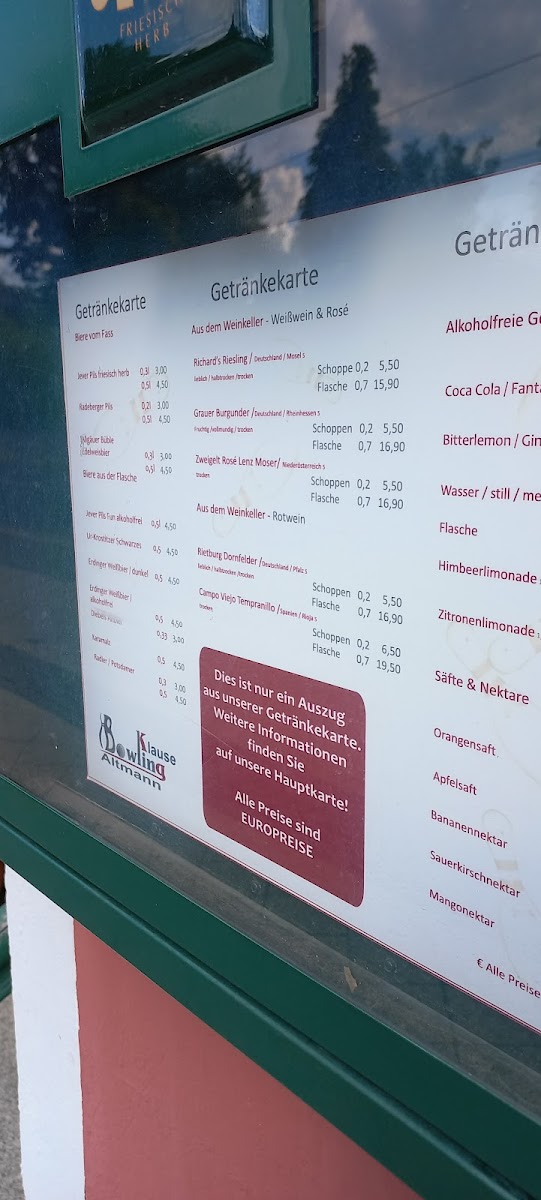 FRIESISCH
HERB
Getränkekarte
Biere vom Fass
Jever Pils friesisch herb 0,3l 3,00
0,5l 4,50
Radeberger Pils 0,2l 3,00
0,5l 4,50
Allgäuer Büble
Edelweisbier 0,3l 3,00
0,5l 4,50
Biere aus der Flasche
Jever Pils Fun alkoholfrei 0,5l 4,50
Ur-Krostitzer Schwarzes 0,5 4,50
Erdinger Weißbier / dunkel 0,5 4,50
Erdinger Weißbier /
alkoholfrei 0,5 4,50
0,33 3,00
Karamalz 0,5 4,50
Radler / Potsdamer 0,3 3,00
0,5 4,50
Bowling
Klause
Altmann
Getränkekarte
Aus dem Weinkeller - Weißwein & Rosé
Richard's Riesling / Deutschland / Mosel 5
lieblich / halbtrocken /trocken
Schoppe 0,2 5,50
Flasche 0,7 15,90
Grauer Burgunder /Deutschland / Rheinhessen 5
Fruchtig /vollmundig / trocken
Schoppen 0,2 5,50
Flasche 0,7 16,90
Zweigelt Rosé Lenz Moser/ Niederösterreich 5
trocken
Schoppen 0,2 5,50
Flasche 0,7 16,90
Aus dem Weinkeller - Rotwein
Rietburg Dornfelder /Deutschland / Pfalz 5
lieblich / halbtrocken /trocken
Schoppen 0,2 5,50
Flasche 0,7 16,90
Campo Viejo Tempranillo /Spanien / Rioja 5
trocken
Schoppen 0,2 6,50
Flasche 0,7 19,50
Dies ist nur ein Auszug
aus unserer Getränkekarte.
Weitere Informationen
finden Sie
auf unsere Hauptkarte!
Alle Preise sind
EUROPREISE
Getränk
Alkoholfreie Ge
Coca Cola / Fanta
Bitterlemon / Gin
Wasser / still / me
Flasche
Himbeerlimonade
Zitronenlimonade
Säfte & Nektare
Orangensaft
Apfelsaft
Bananennektar
Sauerkirschnektar
Mangonektar
€ Alle Preise